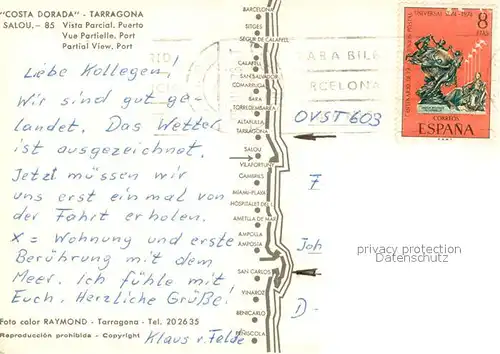 "COSTA DORADA" - TARRAGONA
SALOU, - 85 Vista Parcial. Puerto
Vue Partielle, Port
Partial View, Port
Liebe Kollegen!
Wir sind gut ge-
landet. Das Wetter
ist ausgezeichnet.
Jetzt müssen wir
uns erst einmal von
der Fahrt erholen.
X = Wohnung und erste
Berührung mit dem
Meer. Ich fühle mit
Euch. Herzliche Grüße!
Klaus v. Felde
Foto color RAYMOND - Tarragona - Tel. 202635
Reproducción prohibida - Copyright
BARCELONA
SITGES
SEGUR DE CALAFELL
CALAFELL
SAN SALVADOR
COMARRUGA
BARA
TORREDEMBARRA
ALTAFULLA
TARRAGONA
SALOU
VILAFORTUNY
CAMBRILS
MIAMI-PLAYA
HOSPITALET DEL I.
AMETLLA DE MAR
AMPOLLA
AMPOSTA
SAN CARLOS
VINAROZ
BENICARLO
PEÑISCOLA
RCELONA
8
PTAS
CORREOS
ESPAÑA
OVST 603
F
Joh
D-
privacy protection
Datenschutz